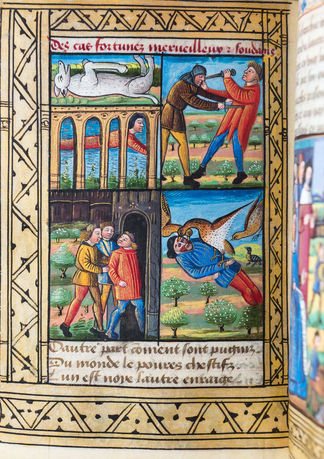 Des cas fortunez merveilleux z soudains
Dautre part coment sont pugniz
Du monde le poures chestifz
Lun est noie lautre enraige